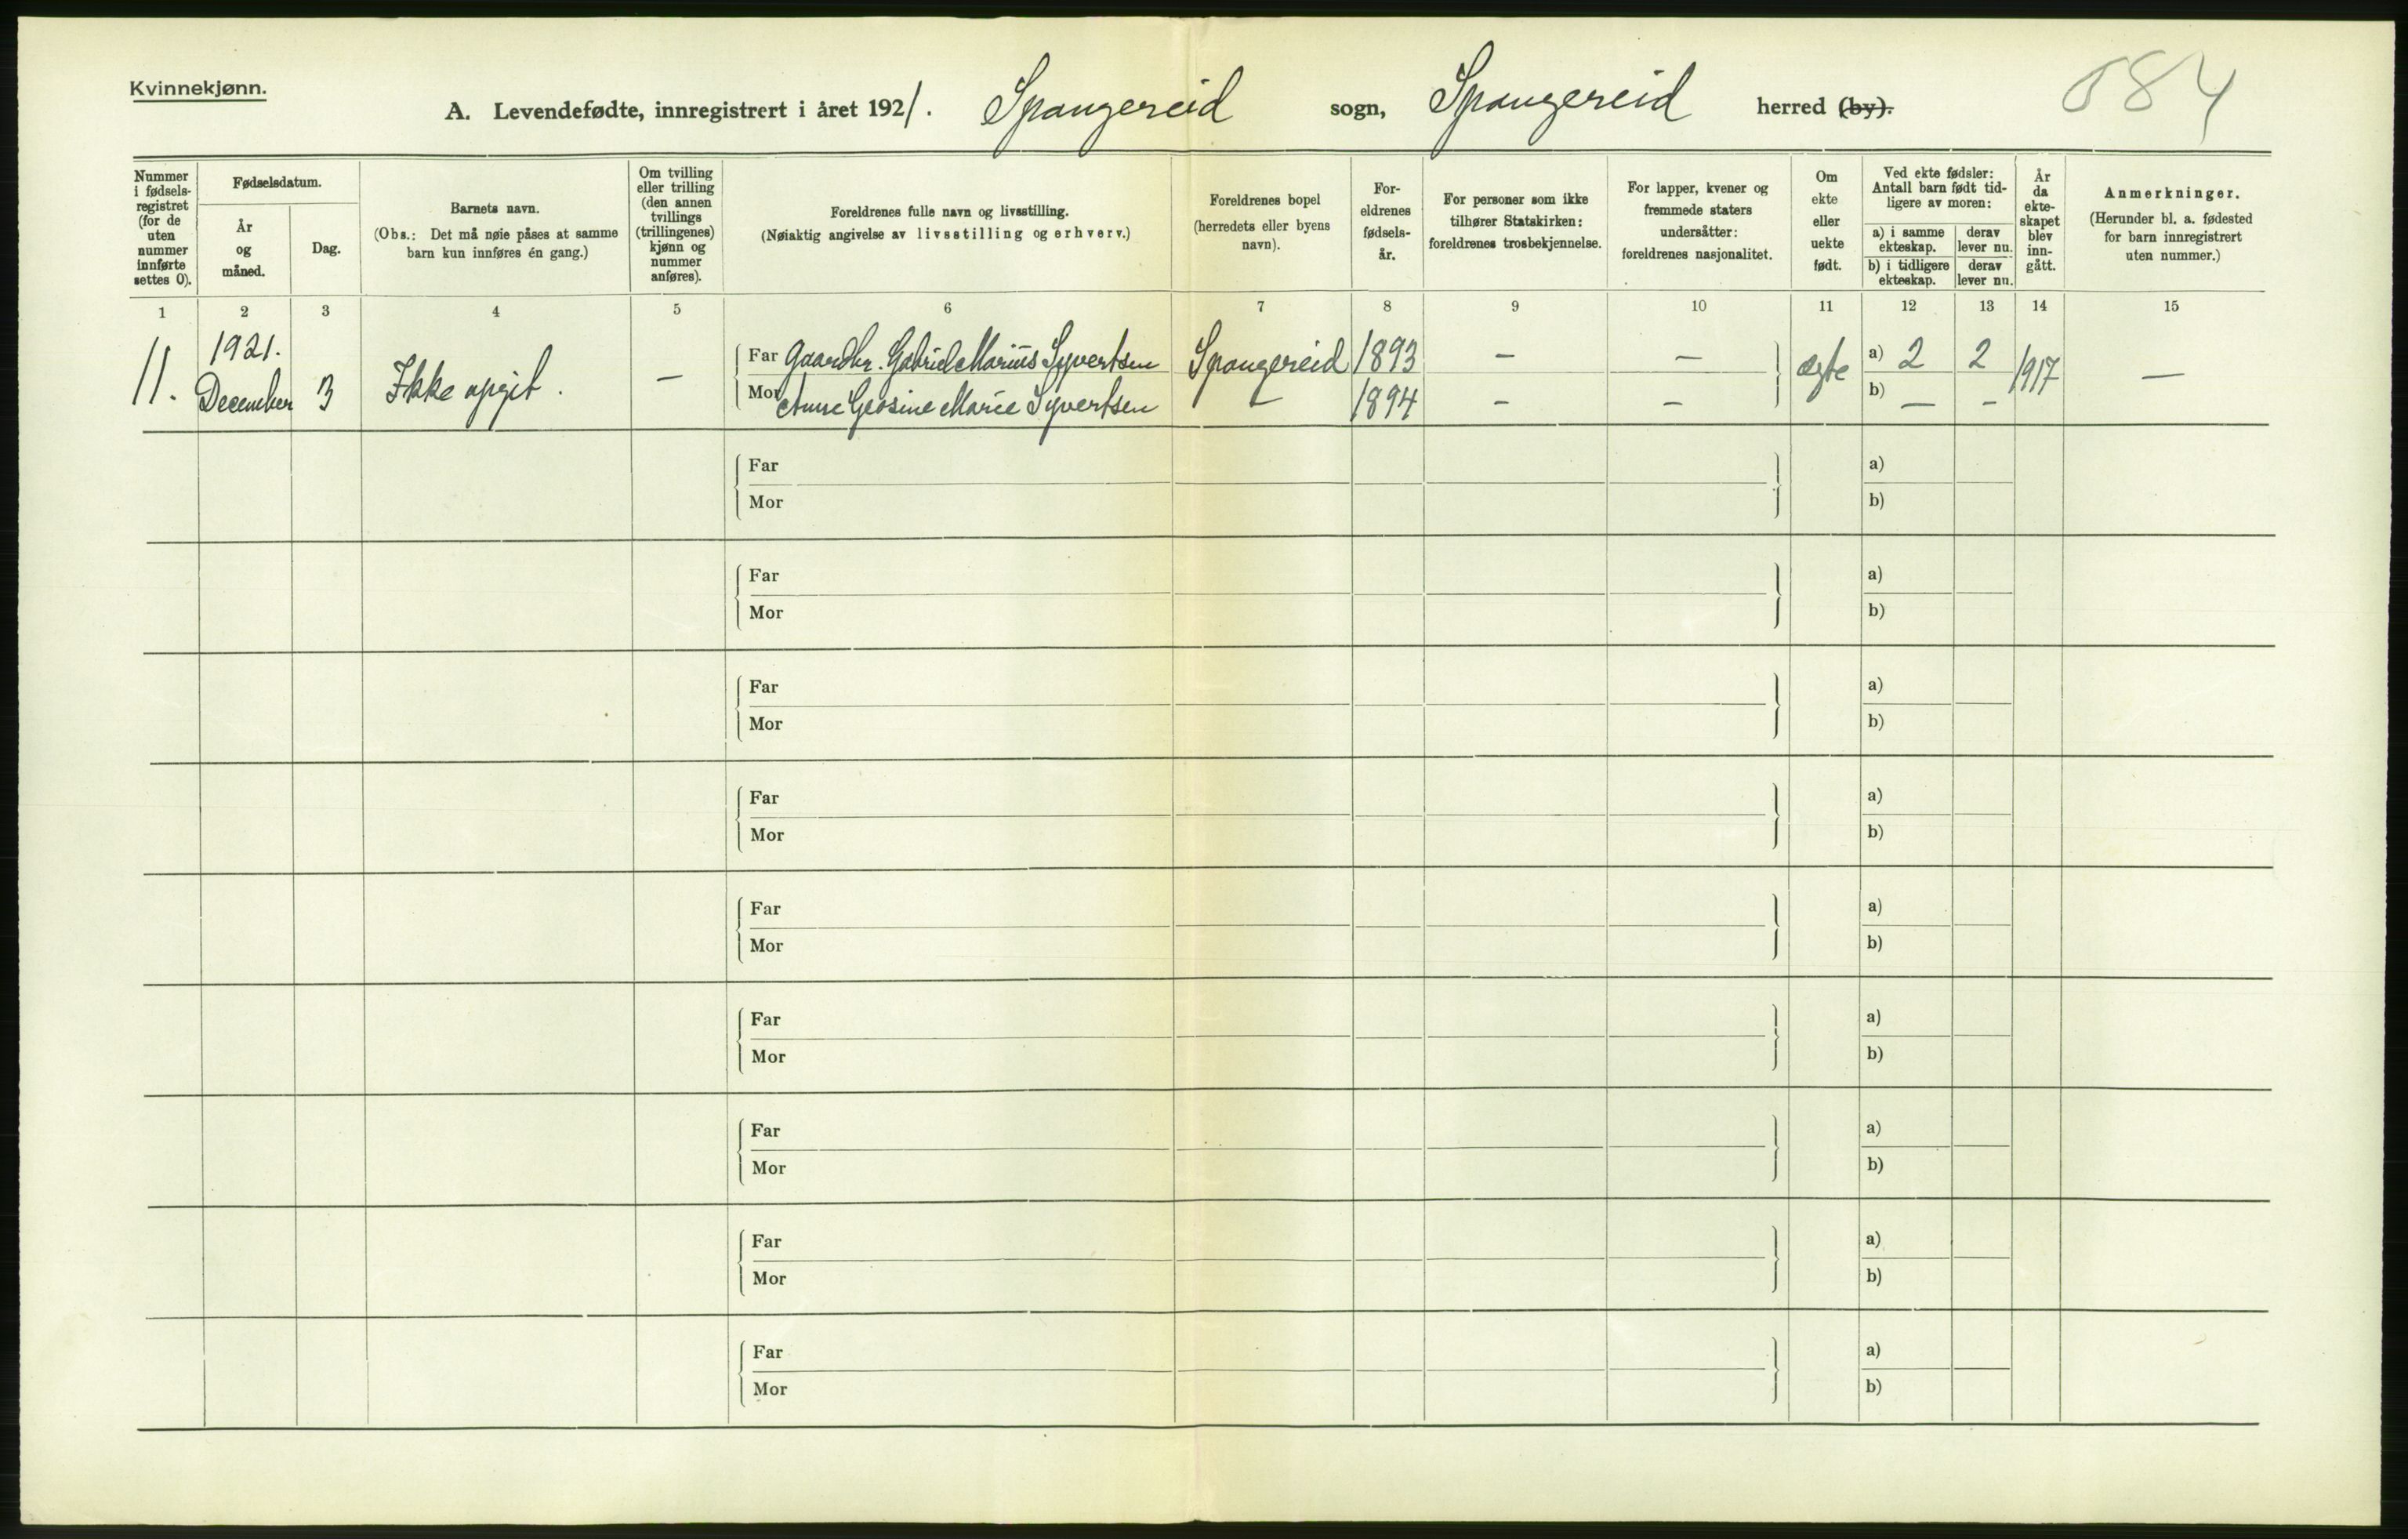 Kvinnekjønn.
584
A. Levendefødte, innregistrert i året 1921. Spangereid sogn, Spangereid herred (by).
Nummer i fødselsregistret (for de uten nummer innførte settes 0).
Fødselsdatum.
År og måned.
Dag.
Barnets navn.
(Obs.: Det må nøie påses at samme barn kun innføres én gang.)
Om tvilling eller trilling (den annen tvillings (trillingenes) kjønn og nummer anføres).
Foreldrenes fulle navn og livsstilling.
(Nøiaktig angivelse av livsstilling og erhverv.)
Foreldrenes bopel (herredets eller byens navn).
Foreldrenes fødselsår.
For personer som ikke tilhører Statskirken: foreldrenes trosbekjennelse.
For lapper, kvener og fremmede staters undersåtter: foreldrenes nasjonalitet.
Om ekte eller uekte født.
Ved ekte fødsler: Antall barn født tidligere av moren:
a) i samme ekteskap. derav lever nu.
b) i tidligere ekteskap. derav lever nu.
År da ekteskapet blev inngått.
Anmerkninger.
(Herunder bl. a. fødested for barn innregistrert uten nummer.)
1 2 3 4 5 6 7 8 9 10 11 12 13 14 15
11. 1921. December 3 Ikke opgit. —
Far Gaardbr. Gabriel Marius Syvertsen Spangereid 1893 – – ægte a) 2 2 1917 —
Mor Anne Marie Syvertsen – 1894 – – b) – –
Far a)
Mor b)
Far a)
Mor b)
Far a)
Mor b)
Far a)
Mor b)
Far a)
Mor b)
Far a)
Mor b)
Far a)
Mor b)
Far a)
Mor b)
Far a)
Mor b)